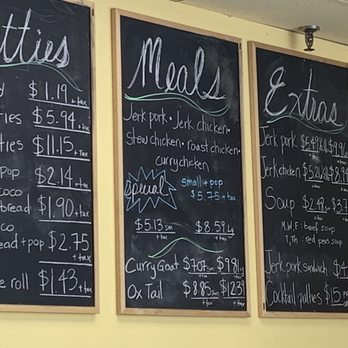 tties
$1.19 + tax
ties $5.94 + tax
ties $11.15 + tax
pop $2.14 + tax
coco
bread $1.90 + tax
co
ead + pop $2.75 + tax
e roll $1.43 + tax
Meals
Jerk pork • Jerk chicken •
Stew chicken • roast chicken •
curry chicken
special
small + pop
$5.75 + tax
$5.13 sm $8.59 Lg
+ tax + tax
Curry Goat $7.07 sm $9.81
+ tax + tax
Ox Tail $8.85 sm $12.39
+ tax + tax
Extras
Jerk pork
Jerk chicken
Soup
M.W.F : beef soup
T,TH : red peas soup
Jerk pork sandwich $4
Cocktail patties $15